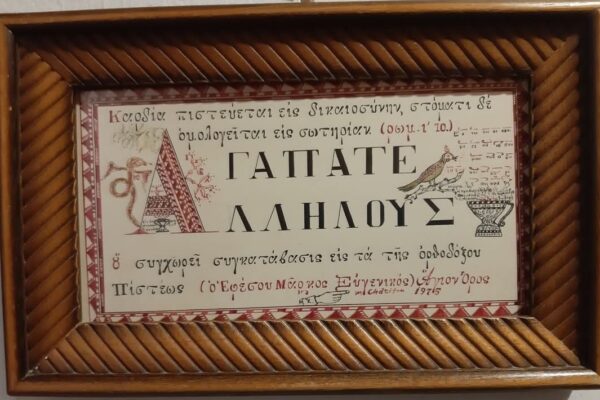 Καρδία πιστεύεται εἰς δικαιοσύνην, στόματι δὲ
ὁμολογεῖται εἰς σωτηρίαν. (ρωμ. ι' 10.)
ΑΓΑΠΑΤΕ
ΑΛΛΗΛΟΥΣ
οὐ συγχωρεῖ συγκατάβασις εἰς τὰ τῆς ὀρθοδόξου
Πίστεως (ὁ Ἐφέσου Μᾶρκος Εὐγενικός) Ἅγιον Ὄρος